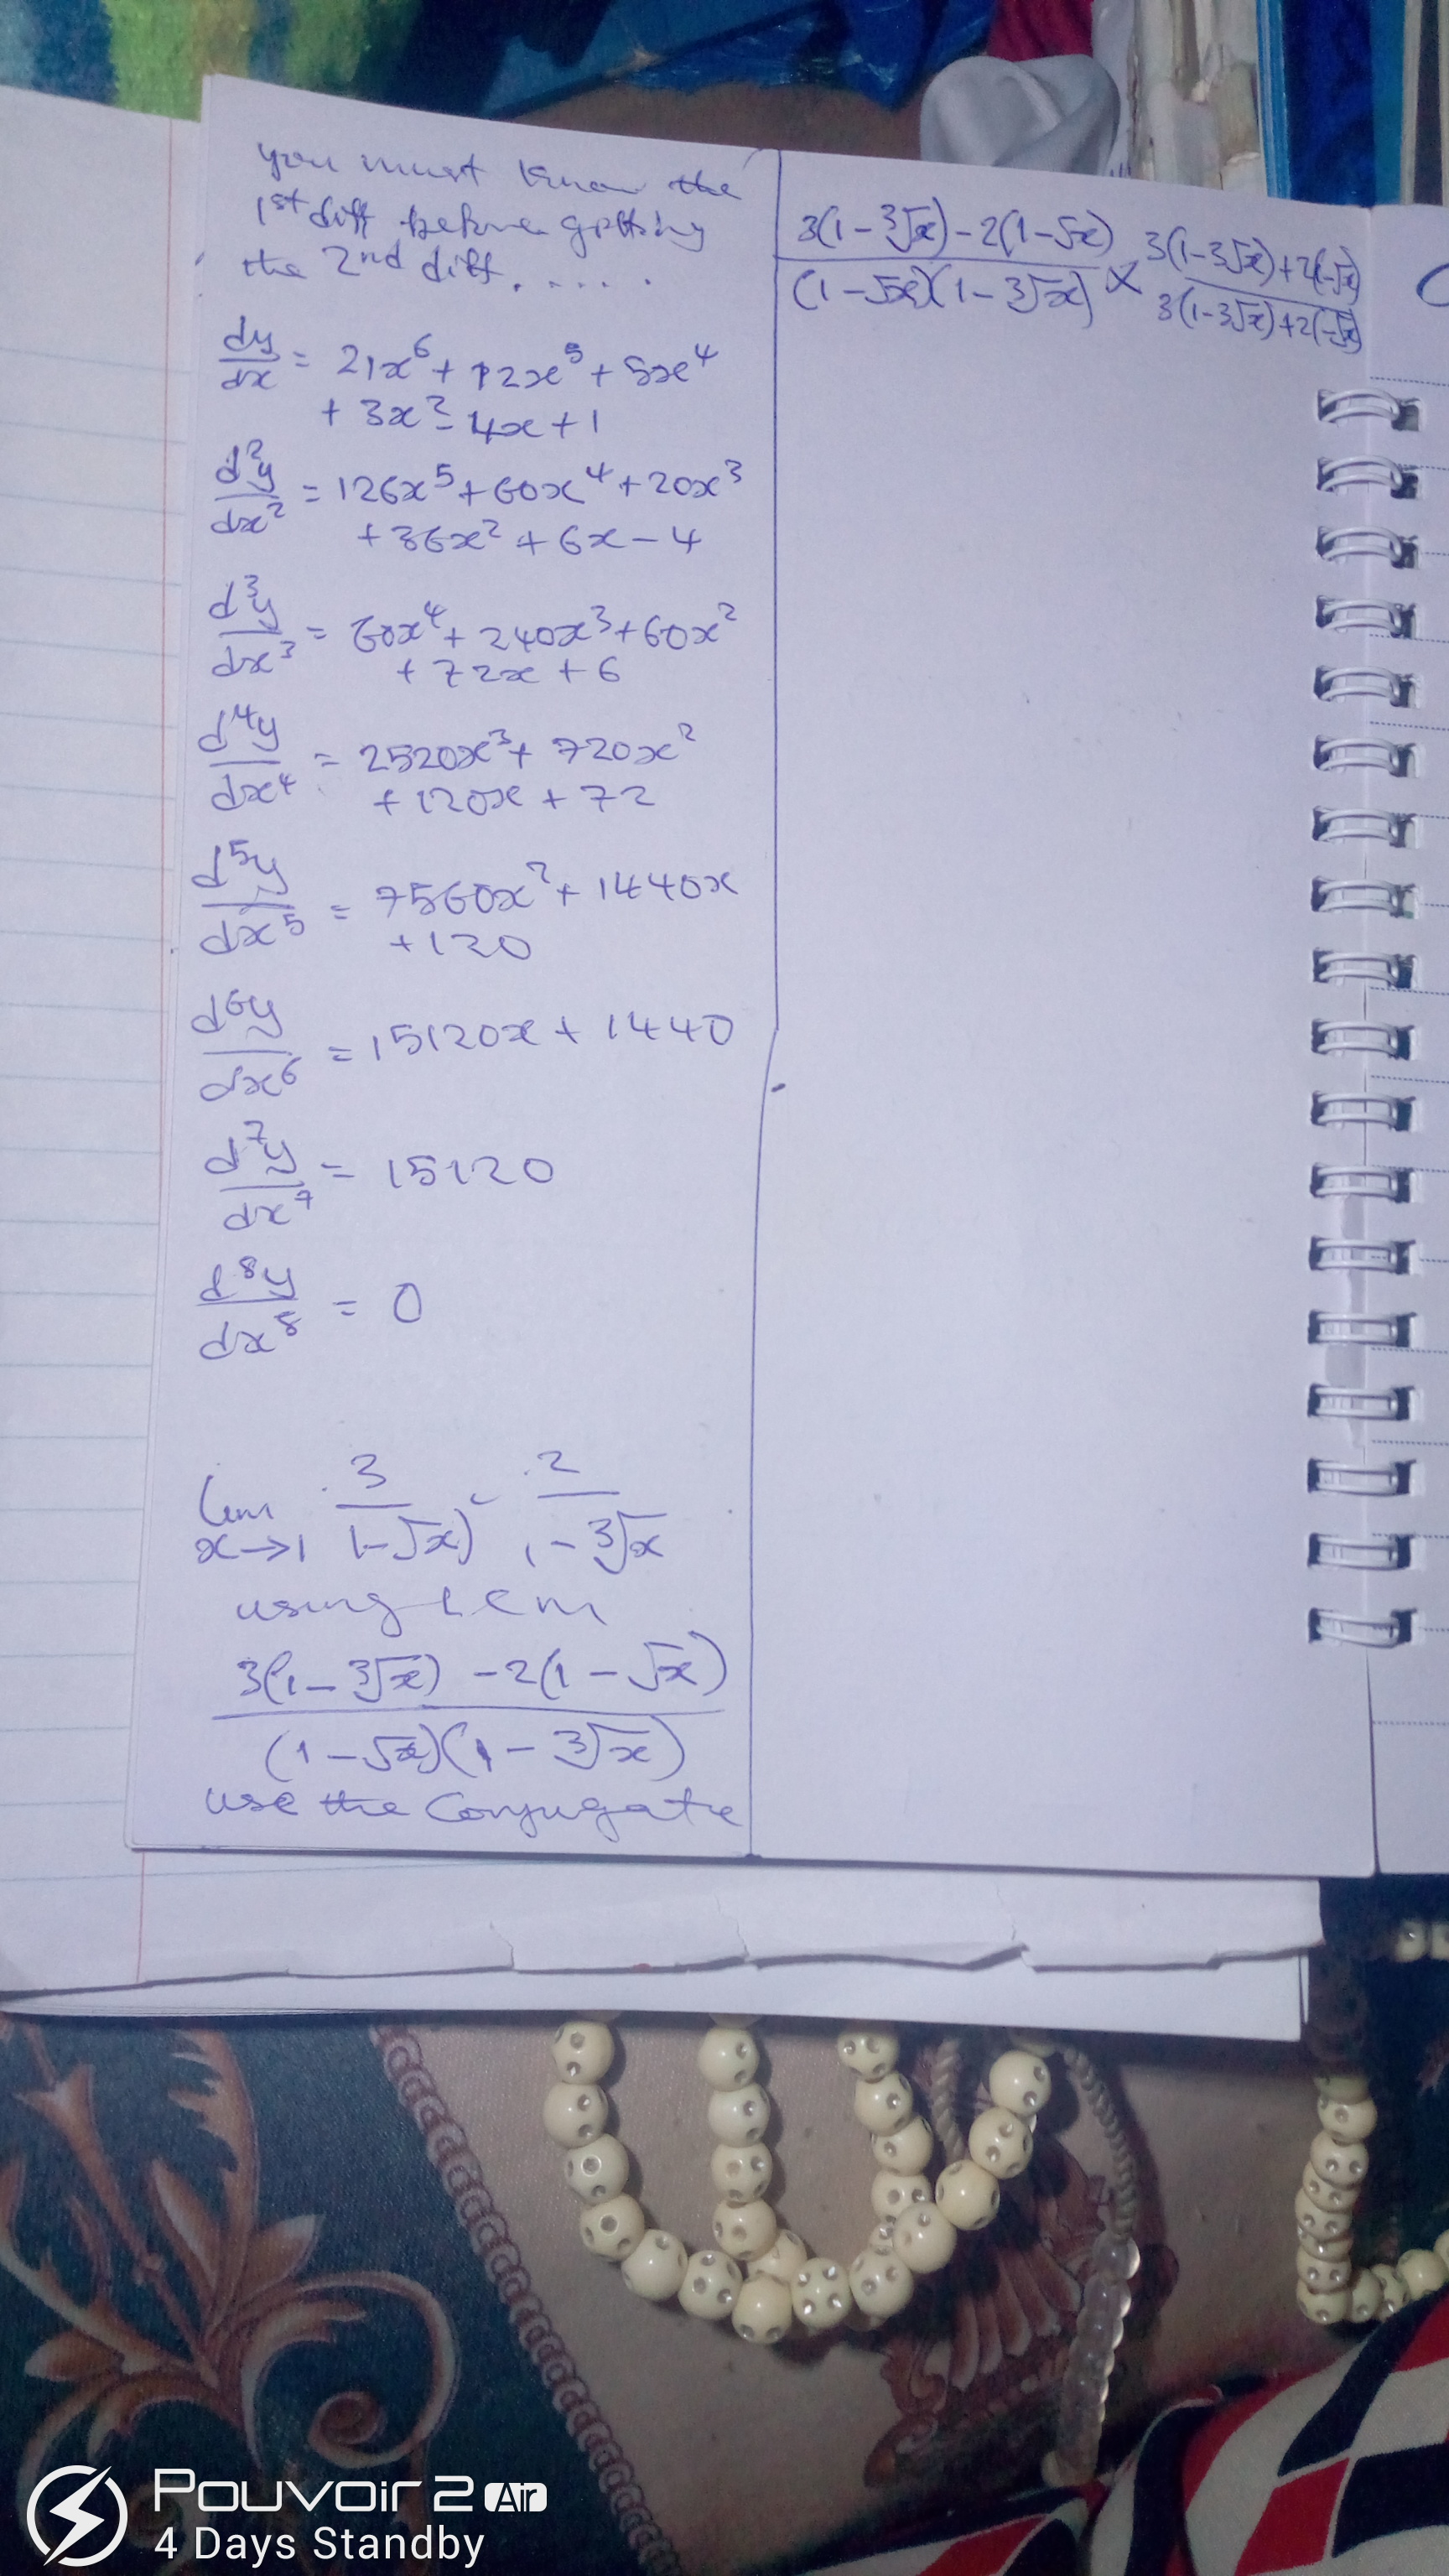 you must know the
1st diff before getting
the 2nd diff. . . . . .
dy/dx = 21x⁶ + 12x⁵ + 5x⁴
+ 3x² - 4x + 1
d²y/dx² = 126x⁵ + 60x⁴ + 20x³
+ 36x² + 6x - 4
d³y/dx³ = 60x⁴ + 240x³ + 60x²
+ 72x + 6
d⁴y/dx⁴ = 2520x³ + 720x²
+ 120x + 72
d⁵y/dx⁵ = 7560x² + 1440x
+ 120
d⁶y/dx⁶ = 15120x + 1440
d⁷y/dx⁷ = 15120
d⁸y/dx⁸ = 0
Lim x→1 3/(1-√x) - 2/(1-∛x)
using LCM
3(1-∛x) - 2(1-√x)
(1-√x)(1-∛x)
use the Conjugate
3(1-∛x) - 2(1-√x) / (1-√x)(1-∛x) × 3(1-3√x)+2(-√x) / 3(1-3√x)+2(-√x)
POUVOIR 2 Air
4 Days Standby